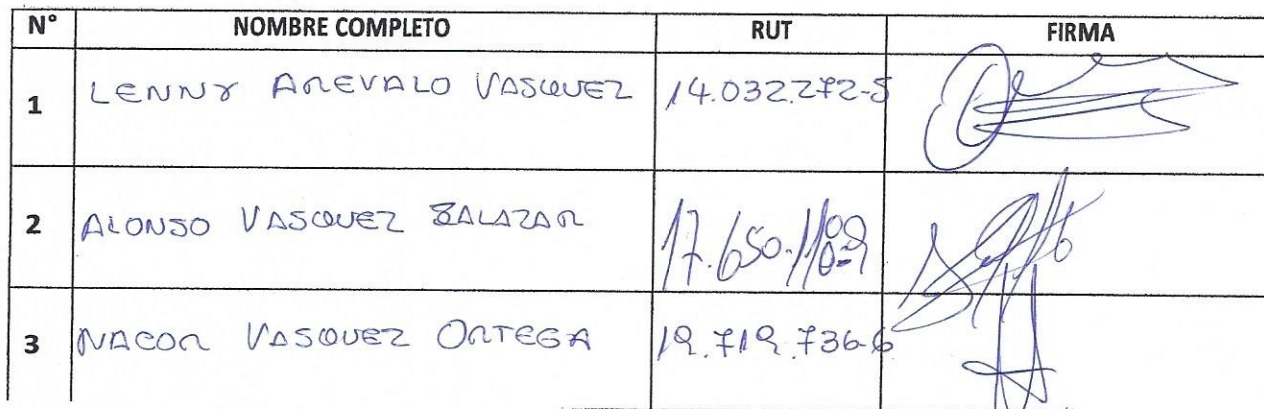 N° NOMBRE COMPLETO RUT FIRMA
1 LENNY AREVALO VASQUEZ 14.032.272-5
2 ALONSO VASQUEZ SALAZAR 17.650.
3 NACOR VASQUEZ ORTEGA 19.719.736-6